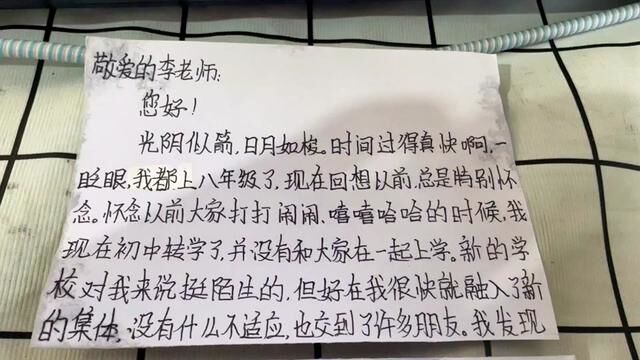 敬爱的李老师:
您好!
光阴似箭,日月如梭。时间过得真快啊,一
眨眼,我都上八年级了,现在回想以前,总是特别怀
念。怀念以前大家打打闹闹、嘻嘻哈哈的时候,我
现在初中转学了,并没有和大家在一起上学。新的学
校对我来说挺陌生的,但好在我很快就融入了新
的集体,没有什么不适应,也交到了许多朋友。我发现